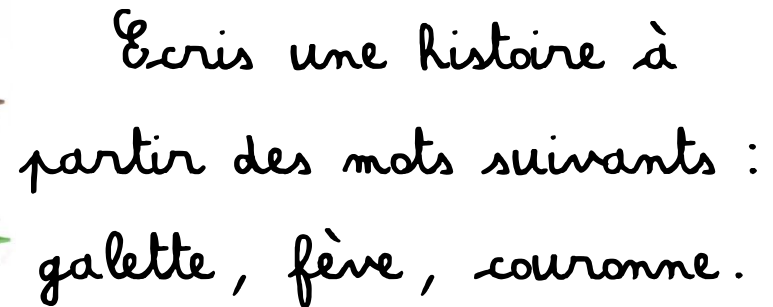 Ecris une histoire à
partir des mots suivants :
galette, fève, couronne.